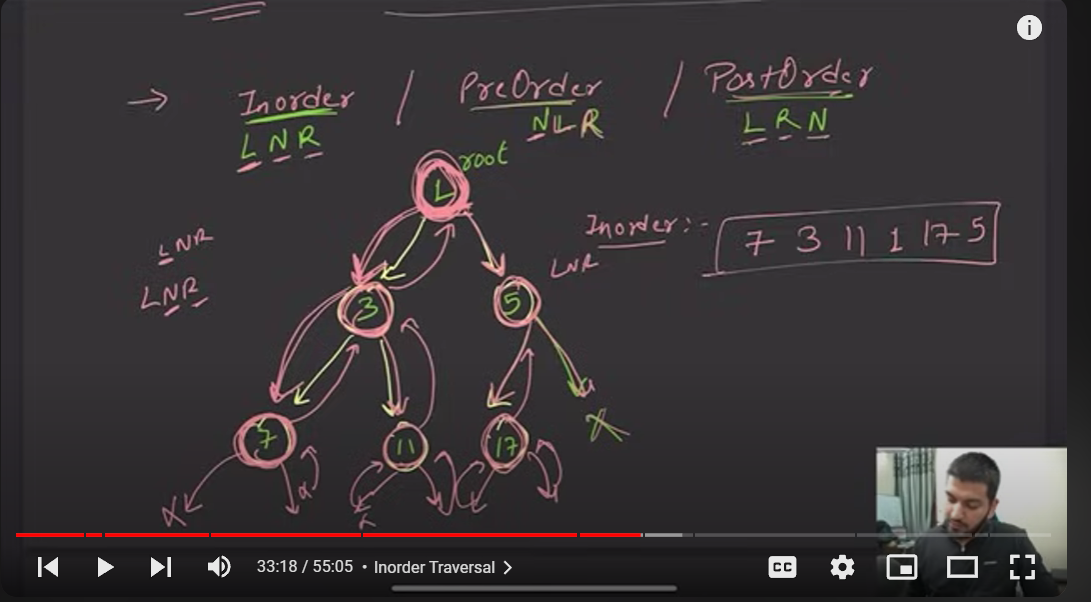 → Inorder / PreOrder / PostOrder
LNR NLR LRN
root
1
Inorder:- 7 3 11 1 17 5
LNR
LNR
LNR
3 5
7 11 17
33:18 / 55:05 • Inorder Traversal >
CC